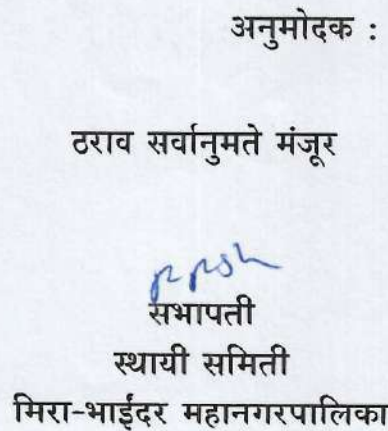 अनुमोदक :
ठराव सर्वानुमते मंजूर
सभापती
स्थायी समिती
मिरा-भाईंदर महानगरपालिका